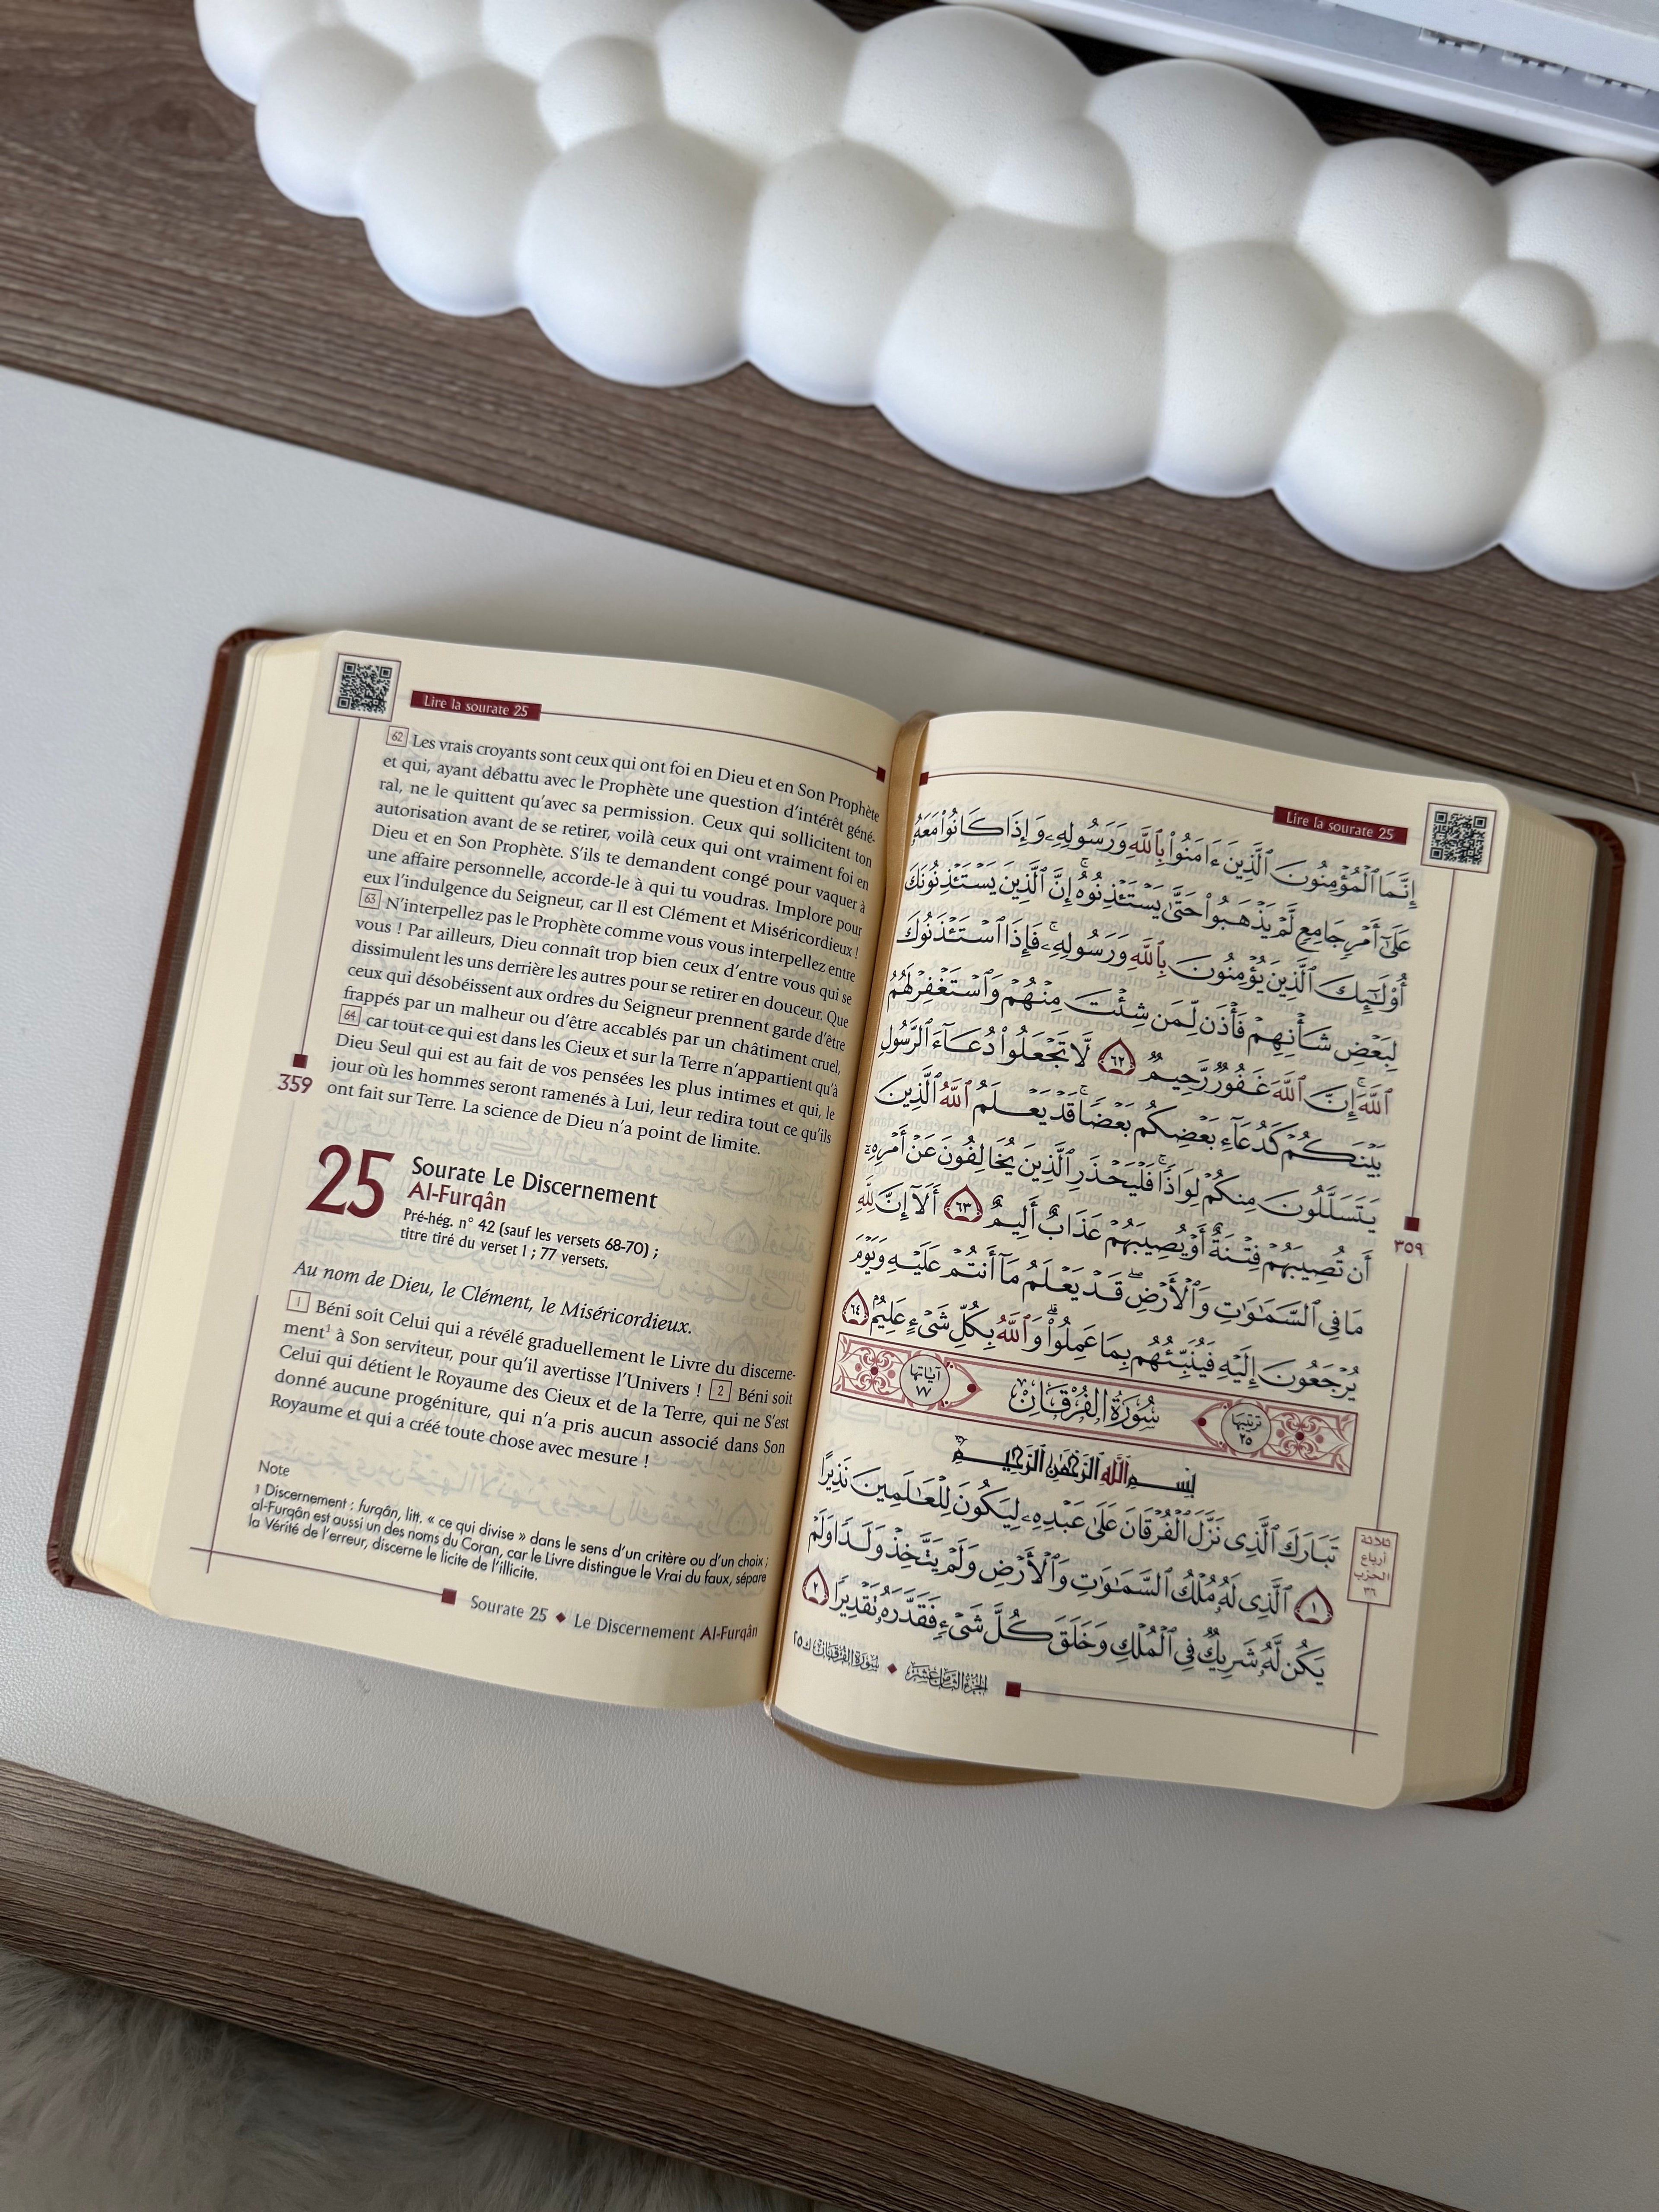 Lire la sourate 25
62 Les vrais croyants sont ceux qui ont foi en Dieu et en Son Prophète
et qui, ayant débattu avec le Prophète une question d'intérêt géné-
ral, ne le quittent qu'avec sa permission. Ceux qui sollicitent ton
autorisation avant de se retirer, voilà ceux qui ont vraiment foi en
Dieu et en Son Prophète. S'ils te demandent congé pour vaquer à
une affaire personnelle, accorde-le à qui tu voudras. Implore pour
eux l'indulgence du Seigneur, car Il est Clément et Miséricordieux !
63 N'interpellez pas le Prophète comme vous vous interpellez entre
vous ! Par ailleurs, Dieu connaît trop bien ceux d'entre vous qui se
dissimulent les uns derrière les autres pour se retirer en douceur. Que
ceux qui désobéissent aux ordres du Seigneur prennent garde d'être
frappés par un malheur ou d'être accablés par un châtiment cruel,
64 car tout ce qui est dans les Cieux et sur la Terre n'appartient qu'à
Dieu Seul qui est au fait de vos pensées les plus intimes et qui, le
jour où les hommes seront ramenés à Lui, leur redira tout ce qu'ils
ont fait sur Terre. La science de Dieu n'a point de limite.
359
25
Sourate Le Discernement
Al-Furqân
Pré-hég. n° 42 (sauf les versets 68-70) ;
titre tiré du verset 1 ; 77 versets.
Au nom de Dieu, le Clément, le Miséricordieux.
1 Béni soit Celui qui a révélé graduellement le Livre du discerne-
ment¹ à Son serviteur, pour qu'il avertisse l'Univers ! 2 Béni soit
Celui qui détient le Royaume des Cieux et de la Terre, qui ne S'est
donné aucune progéniture, qui n'a pris aucun associé dans Son
Royaume et qui a créé toute chose avec mesure !
Note
1 Discernement : furqân, litt. « ce qui divise » dans le sens d'un critère ou d'un choix ;
al-Furqân est aussi un des noms du Coran, car le Livre distingue le Vrai du faux, sépare
la Vérité de l'erreur, discerne le licite de l'illicite.
Sourate 25 ◆ Le Discernement Al-Furqân
Lire la sourate 25
إِنَّمَا ٱلْمُؤْمِنُونَ ٱلَّذِينَ ءَامَنُوا۟ بِٱللَّهِ وَرَسُولِهِۦ وَإِذَا كَانُوا۟ مَعَهُۥ
عَلَىٰٓ أَمْرٍ جَامِعٍ لَّمْ يَذْهَبُوا۟ حَتَّىٰ يَسْتَـْٔذِنُوهُ ۚ إِنَّ ٱلَّذِينَ يَسْتَـْٔذِنُونَكَ
أُو۟لَـٰٓئِكَ ٱلَّذِينَ يُؤْمِنُونَ بِٱللَّهِ وَرَسُولِهِۦ ۚ فَإِذَا ٱسْتَـْٔذَنُوكَ
لِبَعْضِ شَأْنِهِمْ فَأْذَن لِّمَن شِئْتَ مِنْهُمْ وَٱسْتَغْفِرْ لَهُمُ
ٱللَّهَ ۚ إِنَّ ٱللَّهَ غَفُورٌ رَّحِيمٌ ٦٢ لَّا تَجْعَلُوا۟ دُعَآءَ ٱلرَّسُولِ
بَيْنَكُمْ كَدُعَآءِ بَعْضِكُم بَعْضًا ۚ قَدْ يَعْلَمُ ٱللَّهُ ٱلَّذِينَ
يَتَسَلَّلُونَ مِنكُمْ لِوَاذًا ۚ فَلْيَحْذَرِ ٱلَّذِينَ يُخَالِفُونَ عَنْ أَمْرِهِۦٓ
أَن تُصِيبَهُمْ فِتْنَةٌ أَوْ يُصِيبَهُمْ عَذَابٌ أَلِيمٌ ٦٣ أَلَآ إِنَّ لِلَّهِ
مَا فِى ٱلسَّمَـٰوَٰتِ وَٱلْأَرْضِ ۖ قَدْ يَعْلَمُ مَآ أَنتُمْ عَلَيْهِ وَيَوْمَ
يُرْجَعُونَ إِلَيْهِ فَيُنَبِّئُهُم بِمَا عَمِلُوا۟ ۗ وَٱللَّهُ بِكُلِّ شَىْءٍ عَلِيمٌۢ ٦٤
ترتيبها ٢٥ سُورَةُ الفُرْقَانِ آياتها ٧٧
بِسْمِ ٱللَّهِ ٱلرَّحْمَـٰنِ ٱلرَّحِيمِ
تَبَارَكَ ٱلَّذِى نَزَّلَ ٱلْفُرْقَانَ عَلَىٰ عَبْدِهِۦ لِيَكُونَ لِلْعَـٰلَمِينَ نَذِيرًا
١ ٱلَّذِى لَهُۥ مُلْكُ ٱلسَّمَـٰوَٰتِ وَٱلْأَرْضِ وَلَمْ يَتَّخِذْ وَلَدًا وَلَمْ
يَكُن لَّهُۥ شَرِيكٌ فِى ٱلْمُلْكِ وَخَلَقَ كُلَّ شَىْءٍ فَقَدَّرَهُۥ تَقْدِيرًا ٢
٣٥٩
ثلاثة
أرباع
الحزب
٣٦
الجزء الثامن عشر ◆ سورة الفرقان ٢٥